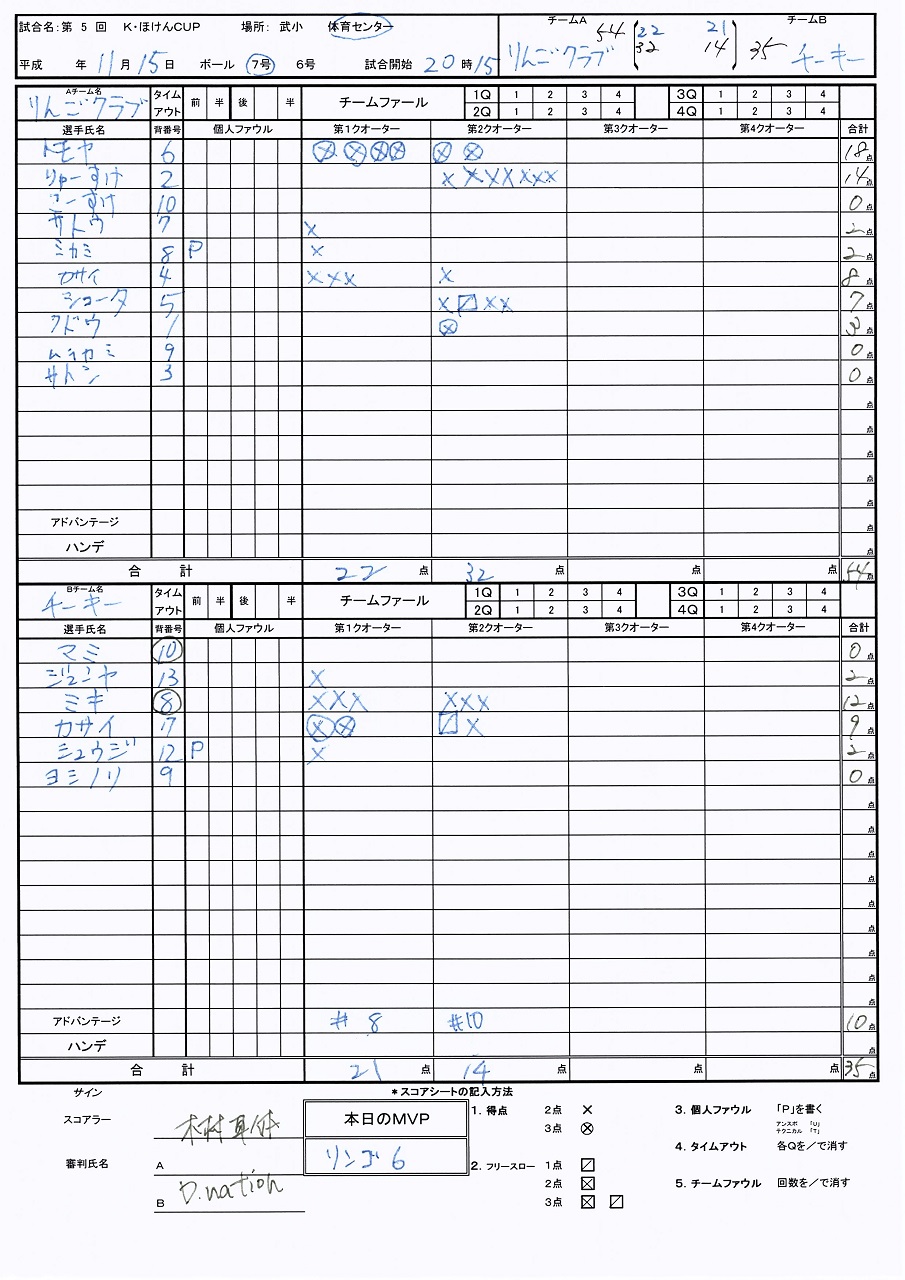 試合名:第 5 回 K・ほけんCUP 場所: 武小 体育センター
平成 年 11 月 15 日 ボール 7号 6号 試合開始 20 時 15
チームA 54 22 21 チームB
りんごクラブ 32 14 35 チーキー
Aチーム名 りんごクラブ タイムアウト 前 半 後 半 チームファール 1Q 1 2 3 4 3Q 1 2 3 4
2Q 1 2 3 4 4Q 1 2 3 4
選手氏名 背番号 個人ファウル 第1クオーター 第2クオーター 第3クオーター 第4クオーター 合計
トモヤ 6 ⊗ ⊗ ⊗ ⊗ ⊗ ⊗ 18点
りゅーすけ 2 × × × × × × × 14点
こーすけ 10 0点
サトウ 7 × 2点
ミカミ 8 P × 2点
カサイ 4 × × × × 8点
ショータ 5 × ⧄ × × 7点
クドウ 1 ⊗ 3点
ムラカミ 9 0点
サトシ 3 0点
点
点
点
点
点
アドバンテージ 点
ハンデ 点
合 計 22 点 32 点 点 点 54点
Bチーム名 チーキー タイムアウト 前 半 後 半 チームファール 1Q 1 2 3 4 3Q 1 2 3 4
2Q 1 2 3 4 4Q 1 2 3 4
選手氏名 背番号 個人ファウル 第1クオーター 第2クオーター 第3クオーター 第4クオーター 合計
マミ 10 0点
ジュンヤ 13 × 2点
ミキ 8 × × × × × × 12点
カサイ 17 ⊗ ⊗ ⧄ × 9点
シュウジ 12 P × 2点
ヨシノリ 9 0点
点
点
点
点
点
点
点
点
点
アドバンテージ # 8 #10 10点
ハンデ 点
合 計 21 点 14 点 点 点 35点
サイン
スコアラー 木村
審判氏名 A
B D.nation
本日のMVP
リンゴ 6
*スコアシートの記入方法
1. 得点 2点 ×
3点 ⊗
2. フリースロー 1点 ⧄
2点 ⊠
3点 ⊠ ⧄
3. 個人ファウル 「P」を書く
アンスポ 「U」
テクニカル 「T」
4. タイムアウト 各Qを/で消す
5. チームファウル 回数を/で消す